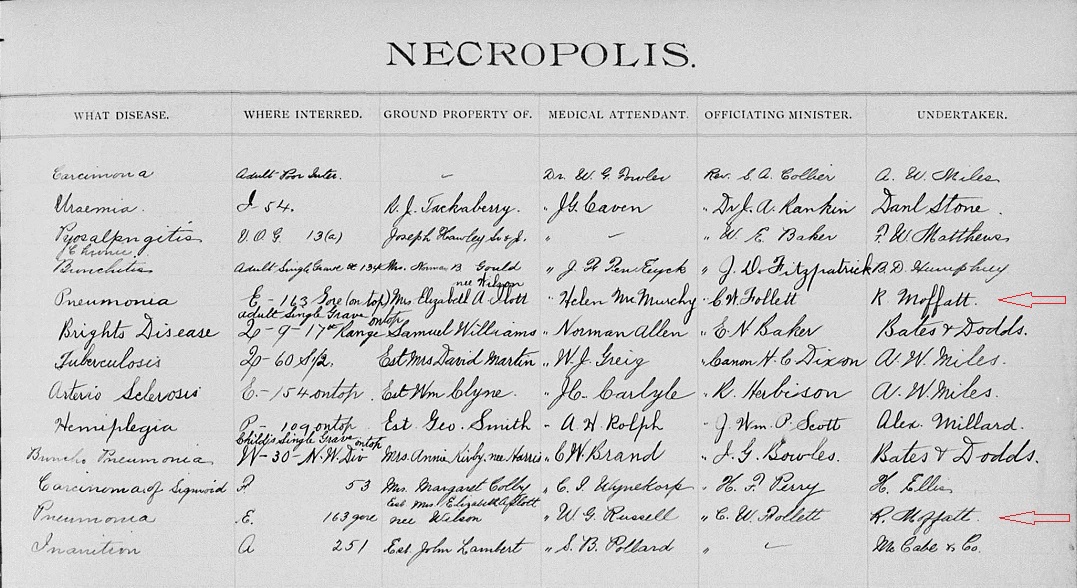 NECROPOLIS.
WHAT DISEASE. WHERE INTERRED. GROUND PROPERTY OF. MEDICAL ATTENDANT. OFFICIATING MINISTER. UNDERTAKER.
Carcimona Adult Poor Inter. - Dr. W. G. Fowler Rev. S. A. Collier A. W. Miles
Uraemia. I 54. R. J. Tackaberry. " J. G. Caven " Dr J. A. Rankin Danl Stone.
Pyosalpngitis V.O.G. 13(a) Joseph Hawley " - " W. E. Baker F. W. Matthews
Chronic
Bronchitis Adult Single Grave Mrs. Norman B Gould " J. F. TenEyck " J. D. Fitzpatrick B. D. Humphrey
nee Wilson
Pneumonia E - 163 Gore (on top) Mrs Elizabeth A. Slott " Helen Mc Murchy " C W. Follett R. Moffatt.
Adult Single Grave on top
Brights Disease 9 - 17th Range Samuel Williams " Norman Allen " E. N Baker Bates & Dodds.
Tuberculosis 60 S 1/2. Est Mrs David Martin " W. J. Greig " Canon H. C Dixon A. W. Miles.
Arterio Sclerosis E. - 154 on top Est Wm Clyne. " J. C. Carlyle " R. Herbison A. W. Miles.
Hemiplegia P - 109 on top Est. Geo. Smith " A. H Rolph " J. Wm. P. Scott Alex. Millard.
Child's Single Grave on top
Broncho Pneumonia W - 30 - N. W. Div Mrs. Annie Kirby, nee Harris " C. W. Brand " J. G. Bowles. Bates & Dodds.
Carcinoma of Sigmoid P. 53 Mrs. Margaret Colby " C. I. " H. F. Perry H. Ellis
Est Mrs. Elizabeth Slott
Pneumonia E. 163 gore nee Wilson " W. G. Russell " C. W. Follett R. Moffatt.
Inanition A 251 Est. John Lambert " S. B. Pollard " - Mc Cabe & Co.